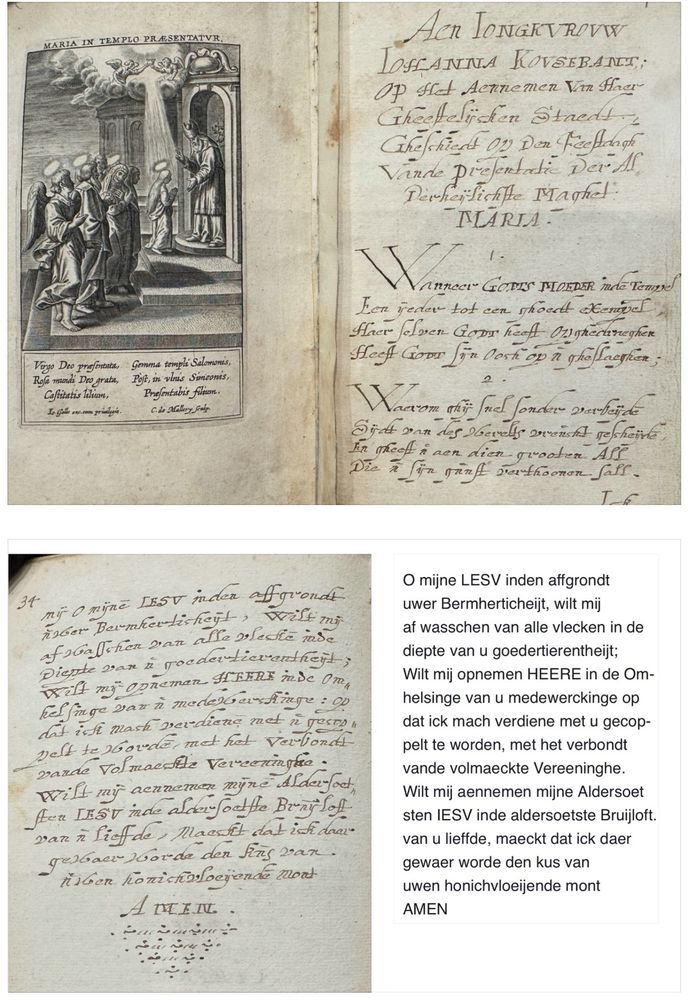 MARIA IN TEMPLO PRÆSENTATVR.
Virgo Deo præsentata,
Rosa mundi Deo grata,
Castitatis lilium,
Gemma templi Salomonis,
Post, in vlnis Simeonis,
Præsentabis filium.
Io Galle exc. cum priuilegio.
C. de Mallery sculp.
Aen IONGKVROVW
IOHANNA KOVSEBANT;
Op Het Aennemen Van Haer
Gheestelijcken Staedt
Gheschiedt Op Den Feestdagh
Vande presentatie Der Al
Derheylichste Maghet
MARIA.
1.
Wanneer GODTS MOEDER inde Tempel
Een yeder tot een ghoedt exempel
Haer selven GODT heeft Opghedraeghen
Heeft GODT sijn Oogh op ū gheslaeghen;
2.
Waerom ghij snel sonder verbeyde
Sijdt van des werelts vreucht gescheyde
En gheeft ū aen dien grooten All
Die ū sijn gunst verthoonen sall.
I-k
34
mij O mijnē IESV inden affgrondt
ūwer Bermherticheijt, Wilt mij
af Wasschen van alle vleckē inde
Diepte van ū goedertierentheijt;
Wilt mij Opnemen HEERE inde Om-
helsinge van ū medewerckinge: op
dat ick mach verdienē met ū gecop-
pelt te wordē, met het Verbondt
vande Volmaeckte Vereeninghe.
Wilt mij aennemen mijnē Aldersoet-
sten IESV inde aldersoetste Brūijloft
van ū lieffde, Maeckt dat ick daer
gewaer worde den kūs van
ūwen honichvloeijendē mont
AMEN.
O mijne LESV inden affgrondt
uwer Bermherticheijt, wilt mij
af wasschen van alle vlecken in de
diepte van u goedertierentheijt;
Wilt mij opnemen HEERE in de Om-
helsinge van u medewerckinge op
dat ick mach verdiene met u gecop-
pelt te worden, met het verbondt
vande volmaeckte Vereeninghe.
Wilt mij aennemen mijne Aldersoet
sten IESV inde aldersoetste Bruijloft.
van u lieffde, maeckt dat ick daer
gewaer worde den kus van
uwen honichvloeijende mont
AMEN